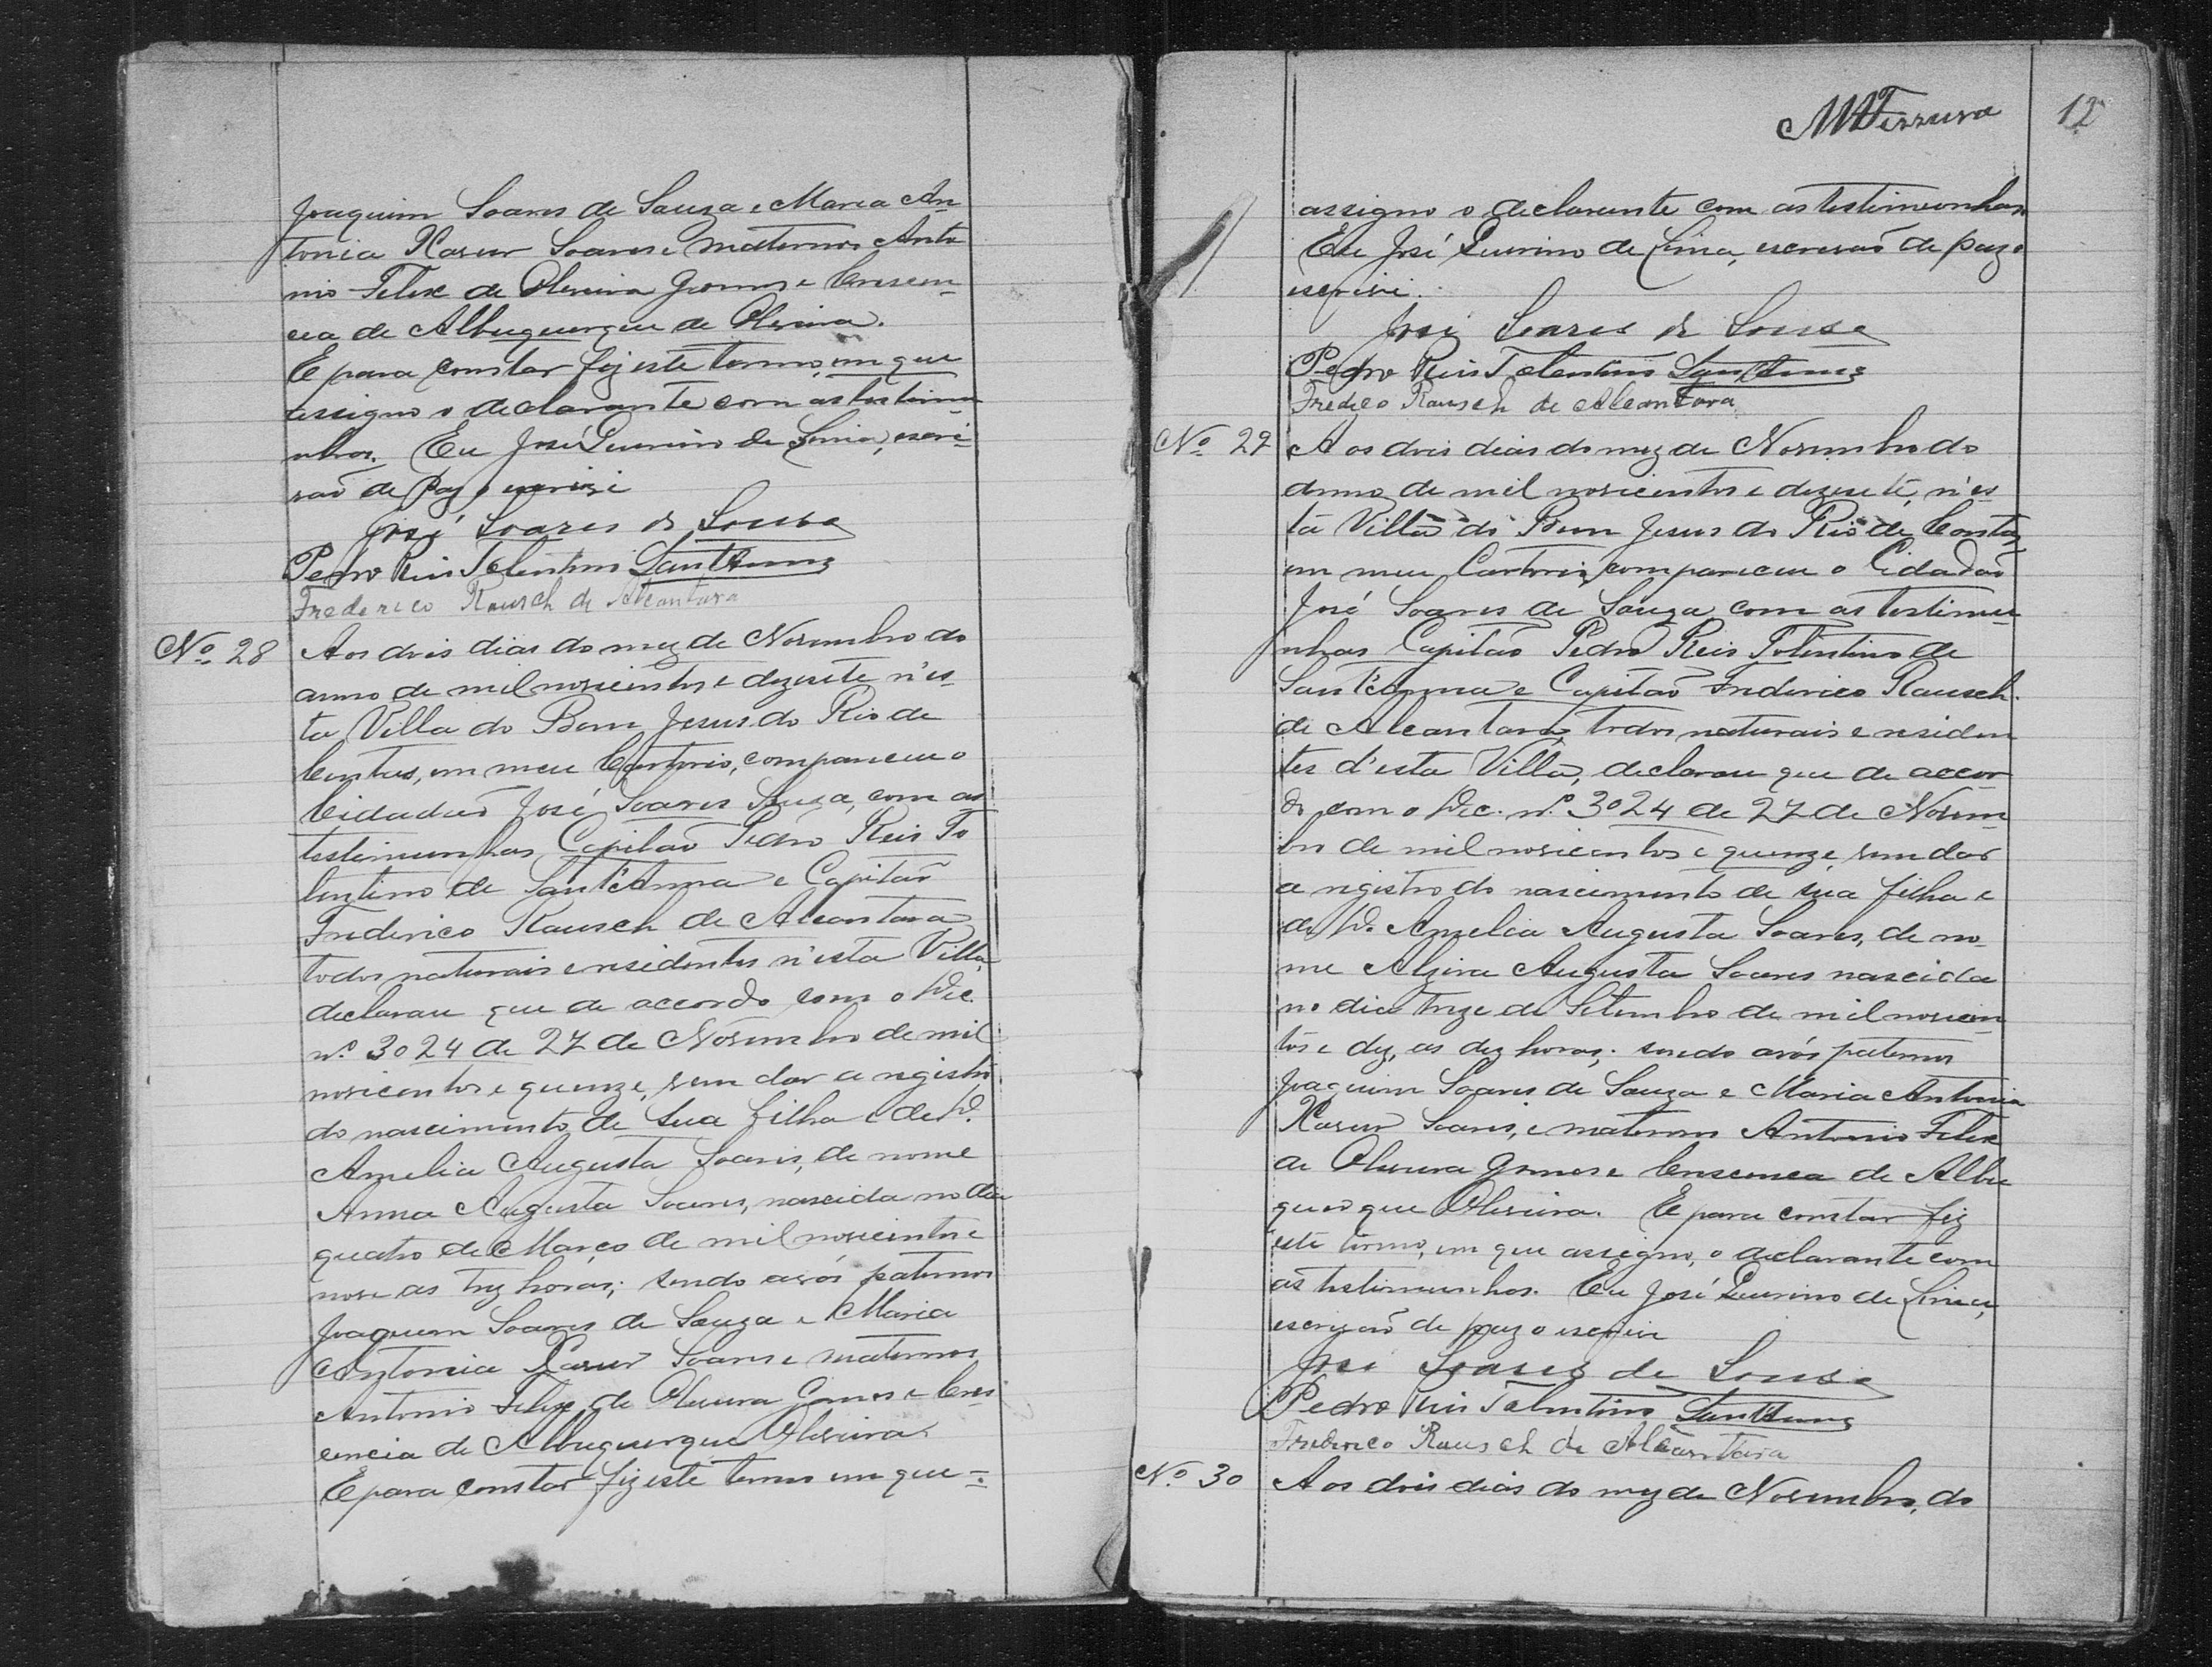 Joaquim Soares de Souza e Maria An
tonia Xavier Soares e maternos Anto
nio Felix de Oliveira Gomes e Crescen-
cia de Albuquerque de Oliveira.
E para constar fiz este termo, em que
assigno o declarante com as testimu
nhas. Eu José Quirino de Lima, escri-
vaõ de Paz o escrivi
José Soares de Sousa
Pedro Reis Tolentino Sant'Anna
Frederico Rausch de Alcantara
No. 28 Aos dois dias do mez de Novembro do
anno de mil novicentos e dezesete n'es-
ta Villa do Bom Jesus do Rio de
Contas, em meu Cartorio, compareceu o
Cidadaõ José Soares Souza, com as
testimunhas Capitaõ Pedro Reis To
lentino de Sant'Anna e Capitaõ
Frederico Rausch de Alcantara
todos naturais e residentes n'esta Villa,
declarou que de accordo com o Dec.
n.º 3024 de 27 de Novembro de mil
novicentos e quinze, vem dar a registro
do nascimento de sua filha e de D.
Amelia Augusta Soares, de nome
Anna Augusta Soares, nascida no dia
quatro de Março de mil novicentos e
nove as trez horas; sendo avós paternos
Joaquim Soares de Souza e Maria
Antonia Xavier Soares e maternos
Antonio Felix de Oliveira Gomes e Cres
cencia de Albuquerque Oliveira.
E para constar fiz este termo em que=
MWFerrura 12
assigno o declarante com as testimonhas
Eu José Quirino de Lima, escrivaõ de paz o
escrivi.
José Soares de Sousa
Pedro Reis Tolentino Sant'Anna
Fredeco Rausch de Alcantara
No. 29 Aos dois dias do mez de Novembro do
anno de mil novicentos e dezesete, n'es
ta Villa do Bom Jesus do Rio de Contas,
em meu Cartorio, compareceu o Cidadaõ
José Soares de Souza com as testimu
nhas Capitaõ Pedro Reis Tolentino de
Sant'Anna e Capitaõ Frederico Rausch
de Alcantara, todos naturais e residen
tes d'esta Villa, declarou que de accor
do com o Dec. n.º 3024 de 27 de Novem-
bro de mil novicentos e quinze, vem dar
a registro do nascimento de sua filha e
de D. Amelia Augusta Soares, de no-
me Alzira Augusta Soares nascida
no dia treze de Setembro de mil novicen
tos e dez, as dez horas; sendo avós paternos
Joaquim Soares de Souza e Maria Antonia
Xavier Soares, e maternos Antonio Felix
de Oliveira Gomes e Crescencia de Albu
querque Oliveira. E para constar fiz
este termo, em que assigno, o declarante com
as testimunhas. Eu José Quirino de Lima,
escrivaõ de paz o escrivi
José Soares de Sousa
Pedro Reis Tolentino Sant'Anna
Frederico Rausch de Alcantara
No. 30 Aos dois dias do mez de Novembro, do